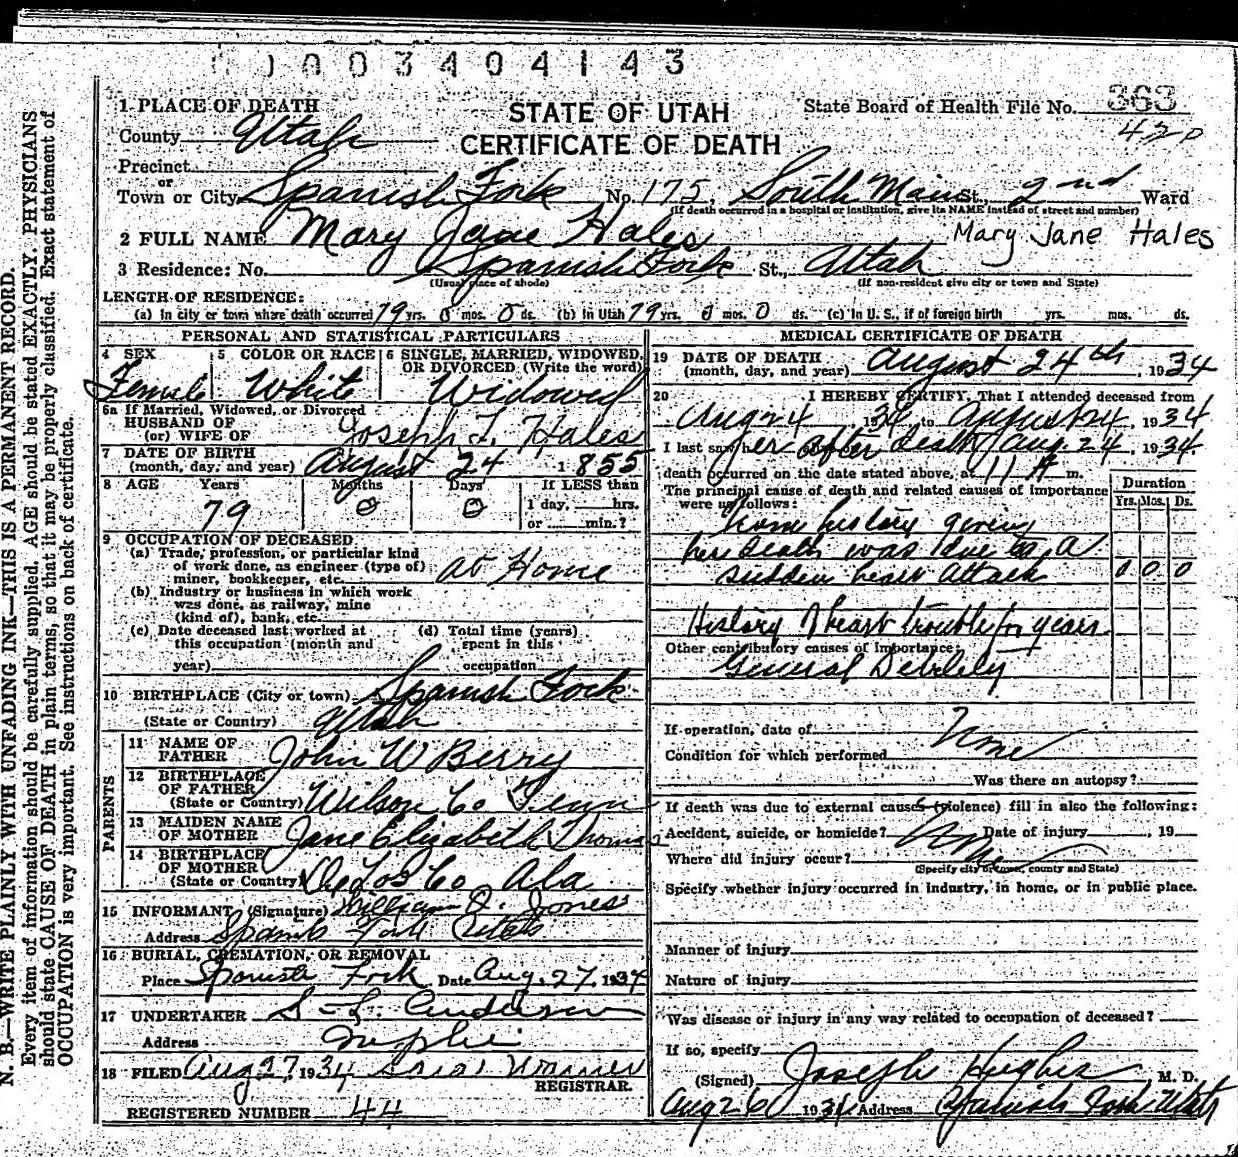 1003404143
1 PLACE OF DEATH
STATE OF UTAH
State Board of Health File No. 363
County Utah
CERTIFICATE OF DEATH
420
Precinct
or
Town or City Spanish Fork No. 175, South Main St., 2nd Ward
(If death occurred in a hospital or institution, give its NAME instead of street and number)
2 FULL NAME Mary Jane Hales Mary Jane Hales
3 Residence: No. Spanish Fork St., Utah
(Usual place of abode) (If non-resident give city or town and State)
LENGTH OF RESIDENCE:
(a) In city or town where death occurred 79 yrs. 0 mos. 0 ds. (b) In Utah 79 yrs. 0 mos. 0 ds. (c) In U. S., if of foreign birth yrs. mos. ds.
PERSONAL AND STATISTICAL PARTICULARS
4 SEX
Female
5 COLOR OR RACE
White
6 SINGLE, MARRIED, WIDOWED,
OR DIVORCED (Write the word)
Widowed
6a If Married, Widowed, or Divorced
HUSBAND OF
(or) WIFE OF Joseph L. Hales
7 DATE OF BIRTH
(month, day, and year) August 24 1855
8 AGE Years Months Days If LESS than
1 day, hrs.
79 0 0 or min.?
9 OCCUPATION OF DECEASED
(a) Trade, profession, or particular kind
of work done, as engineer (type of)
miner, bookkeeper, etc. at Home
(b) Industry or business in which work
was done, as railway, mine
(kind of), bank, etc.
(c) Date deceased last worked at
this occupation (month and
year)
(d) Total time (years)
spent in this
occupation
10 BIRTHPLACE (City or town) Spanish Fork
(State or Country) Utah
PARENTS
11 NAME OF
FATHER John W Berry
12 BIRTHPLACE
OF FATHER
(State or Country) Wilson Co Tenn
13 MAIDEN NAME
OF MOTHER Jane Elizabeth Thomas
14 BIRTHPLACE
OF MOTHER
(State or Country) Co Ala
15 INFORMANT (Signature) William O. Jones
Address Spanish Fork Utah
16 BURIAL, CREMATION, OR REMOVAL
Place Spanish Fork Date Aug. 27, 1934
17 UNDERTAKER Anderson
Address Nephi
18 FILED Aug 27, 1934 Warner
REGISTRAR.
REGISTERED NUMBER 44
MEDICAL CERTIFICATE OF DEATH
19 DATE OF DEATH
(month, day, and year) August 24th, 1934
20 I HEREBY CERTIFY, That I attended deceased from
Aug 24, 1934 to August 24, 1934
I last saw her after death Aug. 24, 1934.
death occurred on the date stated above, at 11 A m.
The principal cause of death and related causes of importance
were as follows:
Duration
Yrs. Mos. Ds.
from history given
her death was due to a
sudden heart attack 0 0 0
History of heart trouble for years
Other contributory causes of importance:
General Debility
If operation, date of None
Condition for which performed
Was there an autopsy?
If death was due to external causes (violence) fill in also the following:
Accident, suicide, or homicide? None Date of injury , 19
Where did injury occur?
(Specify city or town, county and State)
Specify whether injury occurred in industry, in home, or in public place.
Manner of injury
Nature of injury
Was disease or injury in any way related to occupation of deceased?
If so, specify
(Signed) Joseph Hughes M. D.
Aug 26 1934 Address Spanish Fork Utah
N. B.—WRITE PLAINLY WITH UNFADING INK—THIS IS A PERMANENT RECORD.
Every item of information should be carefully supplied. AGE should be stated EXACTLY. PHYSICIANS
should state CAUSE OF DEATH in plain terms, so that it may be properly classified. Exact statement of
OCCUPATION is very important. See instructions on back of certificate.